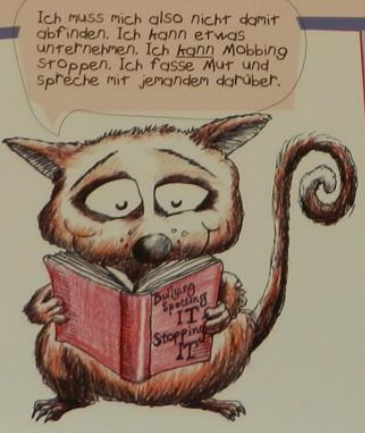 Ich muss mich also nicht damit
abfinden. Ich kann etwas
unternehmen. Ich kann Mobbing
stoppen. Ich fasse Mut und
spreche mit jemandem darüber.
Bullying
Spotting
IT
Stopping
IT